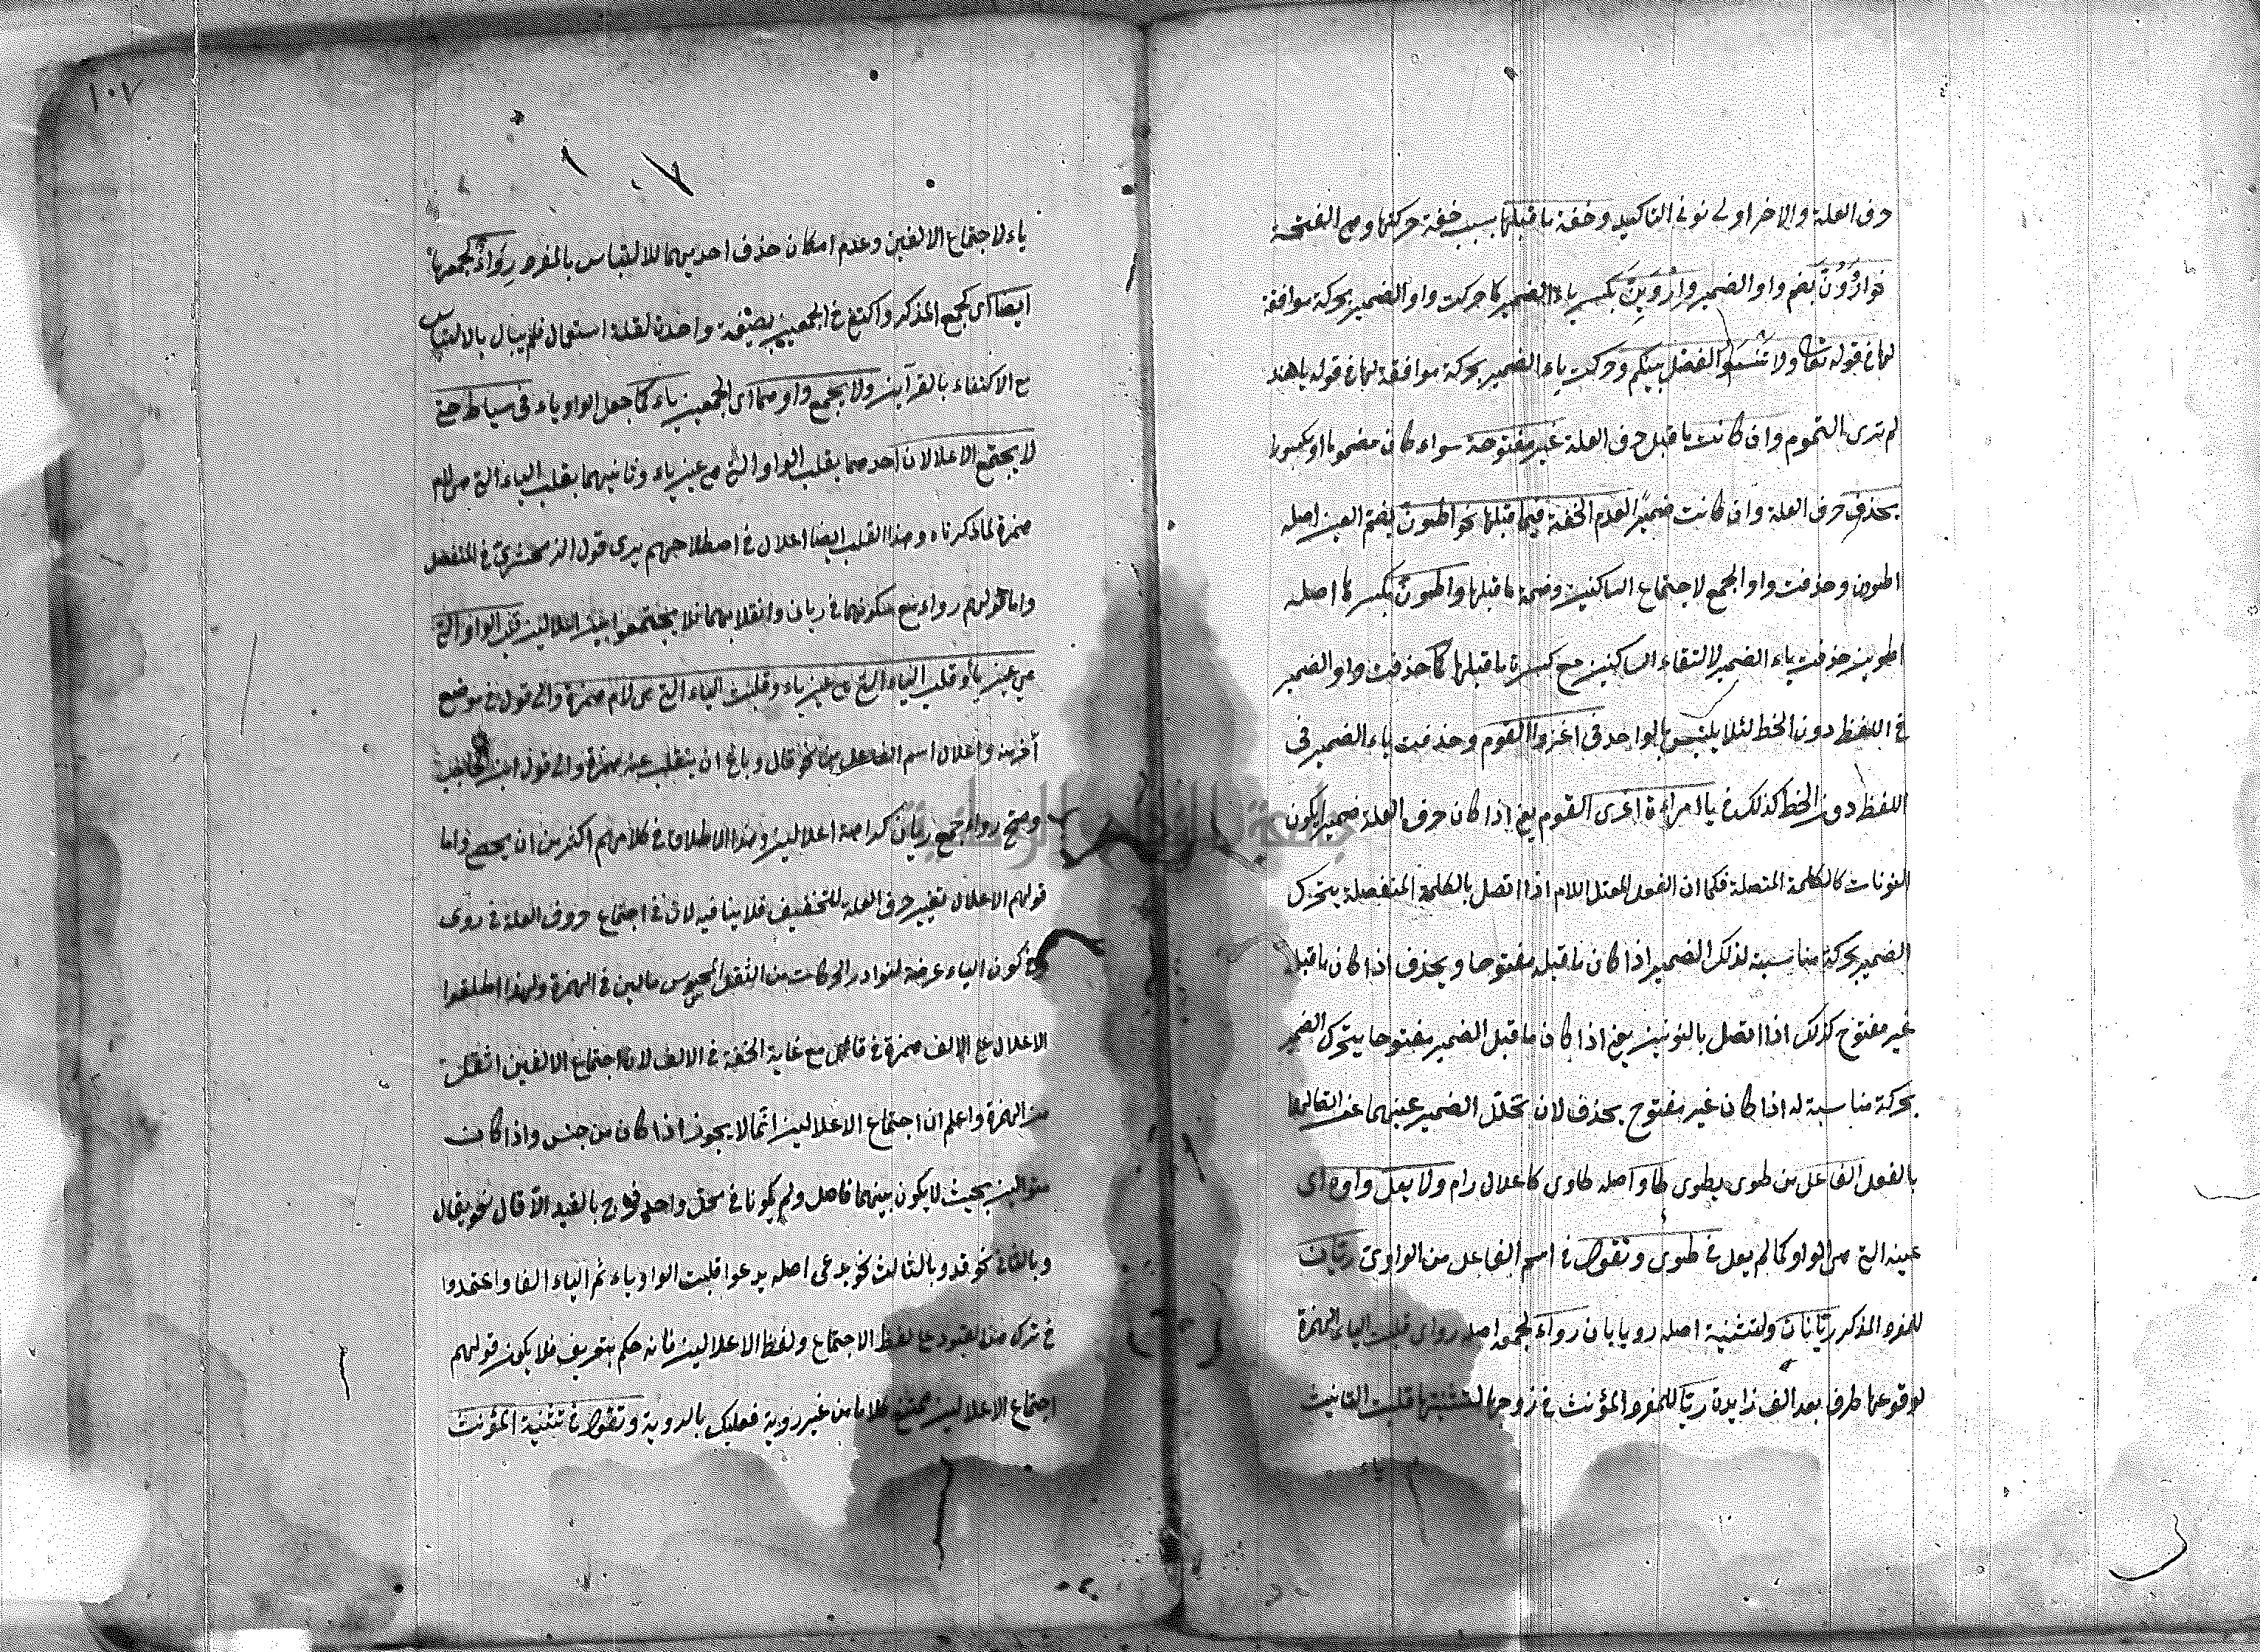 حرف العلة والاخر اولى نونى التاكيد وخفة ما قبلها بسبب خفة حركتها وهى الفتحة
نحو ارْوَوُنَّ بضم واو الضمير وارْوَيِنَّ بكسر ياء الضمير كما حركت واو الضمير بحركة موافقة
لها فى قوله تعالى ولا تنسوا الفضل بينكم وحركت ياء الضمير بحركة موافقة لها فى قوله يا هند
لم ترى القوم وان كانت ما قبل حرف العلة غير مفتوحة سواء كان مضموما او مكسورا
بحذف حرف العلة وان كانت ضميرا لعدم الخفة فيما قبلها نحو اطونّ بضم العين اصله
اطوون وحذفت واو الجمع لاجتماع الساكنين وضمة ما قبلها واطونّ بكسرها اصله
اطوين حذفت ياء الضمير لالتقاء الساكنين مع كسرة ما قبلها كما حذفت واو الضمير
فى اللفظ دون الخط لئلا يلتبس بالواحد فى اغزوا القوم وحذفت ياء الضمير فى
اللفظ دون الخط كذلك فى يا امراءة اغزى القوم يعنى اذا كان حرف العلة ضميرا يكون
النونات كالكلمة المتصلة فكما ان الفعل المعتل اللام اذا اتصل بالكلمة المنفصلة يتحرك
الضمير بحركة مناسبة لذلك الضمير اذا كان ما قبله مفتوحا ويحذف اذا كان ما قبله
غير مفتوح كذلك اذا اتصل بالنونين يعنى اذا كان ما قبل الضمير مفتوحا يتحرك الضمير
بحركة مناسبة له اذا كان غير مفتوح يحذف لان تخلل الضمير عينهما عند اتصالهما
بالفعل الفاعل من طوى يطوى طاو اصله طاوى كاعلال رام ولا يعل واوه اى
عينه التى هى الواو كما لم يعل فى طوى وتقول فى اسم الفاعل من الواوى ريّان
للمفرد المذكر ريّانان ولتثنية اصله رويايان رواء لجمعه اصله رواى قلبت الياء الهمزة
لوقوعها طرف بعد الف زايدة ريّا للمفرد المؤنث فى زوجها لتثنيتها قلبت التانيث
ياء
١٠٧
١٠٧
ياء لاجتماع الالفين وعدم امكان حذف احديهما للالتباس بالمفرد رِوَاءٌ لجمعها
ايضا اى كجمع المذكر واكتفى فى الجمعين بصيغة واحدة لقلة استعمال فلم يبال بالالتباس
مع الاكتفاء بالقرآين ولا يجمع واوهما اى الجمعين ياء كما جعل الواو ياء فى سياط حتى
لا يجتمع الاعلالان احدهما بقلب الواو التى هى عين ياء وثانيهما بقلب الياء التى هى لام
همزة لما ذكرناه وهذا القلب ايضا اعلال فى اصطلاحهم يرى قول الزمخشرى فى المفصل
واما قولهم رواء مع سكونهما فى ريان وانقلابهما فلا يجتمعوا بين اعلالين قلب الواو التى
هى عين ياء وقلب الياء التى هى عين ياء وقلبت الياء التى هى لام همزة والى قول فى موضع
آخر منه واعلال اسم الفاعل من نحو قال وباع ان ينقلب عينه همزة والى قول ابن الحاجب
وصح رواء جمع ريان كراهة اعلالين وهذا الاطلاق فى كلامهم اكثر من ان يحصى واما
قولهم الاعلال تغيير حرف العلة للتخفيف فلا ينافيه لان فى اجتماع حروف العلة فى روى
مع كون الياء عرضة لنوادر الحركات من الثقل المحسوس ما ليس فى الهمزة ولهذا اطلقوا
الاعلال على الالف همزة فى قائل مع غاية الخفة فى الالف لان اجتماع الالفين اثقل
من الهمزة واعلم ان اجتماع الاعلالين انما لا يجوز اذا كان من جنس واذا كان
متواليين بحيث لا يكون بينهما فاصل ولم يكونا فى محل واحد بالقيد الاول نحو يقال
وبالثانى نحو قد وبالثالث نحو يدعى اصله يدعوا قلبت الواو ياء ثم الياء الفا واعتمدوا
فى ترك هذه القيود على لفظ الاجتماع ولفظ الاعلالين فانه حكم بتعريف فلا يكون قولهم
اجتماع الاعلالين ممتنع كلاما من غير روية فعليك بالروية وتقول فى تثنية المؤنث